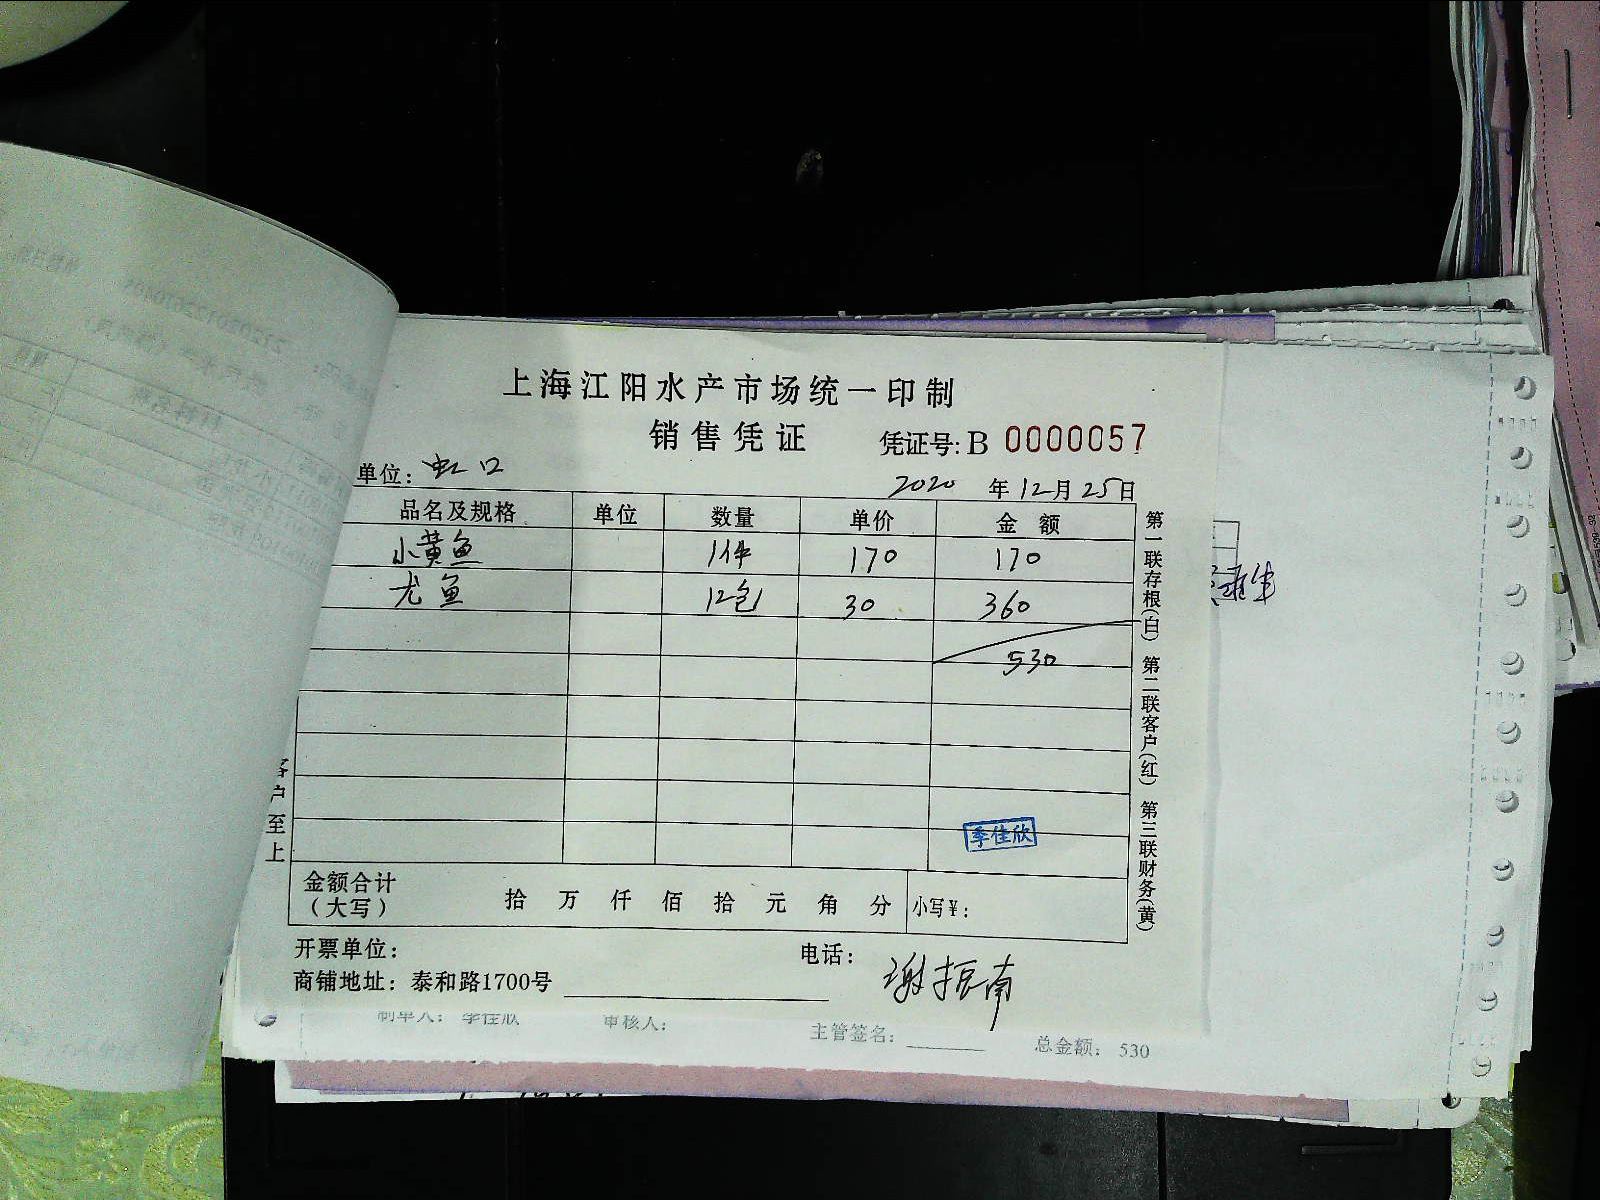 上海江阳水产市场统一印制
销售凭证 凭证号: B 0000057
单位: 虹口 2020 年 12 月 25 日
品名及规格 单位 数量 单价 金额
小黄鱼 1件 170 170
尤鱼 12包 30 360
530
季佳欣
金额合计(大写) 拾 万 仟 佰 拾 元 角 分 小写¥:
开票单位: 电话:
商铺地址: 泰和路1700号 谢振南
第一联存根(白) 第二联客户(红) 第三联财务(黄)
客户至上
制单人: 季佳欣 审核人: 主管签名: 总金额: 530